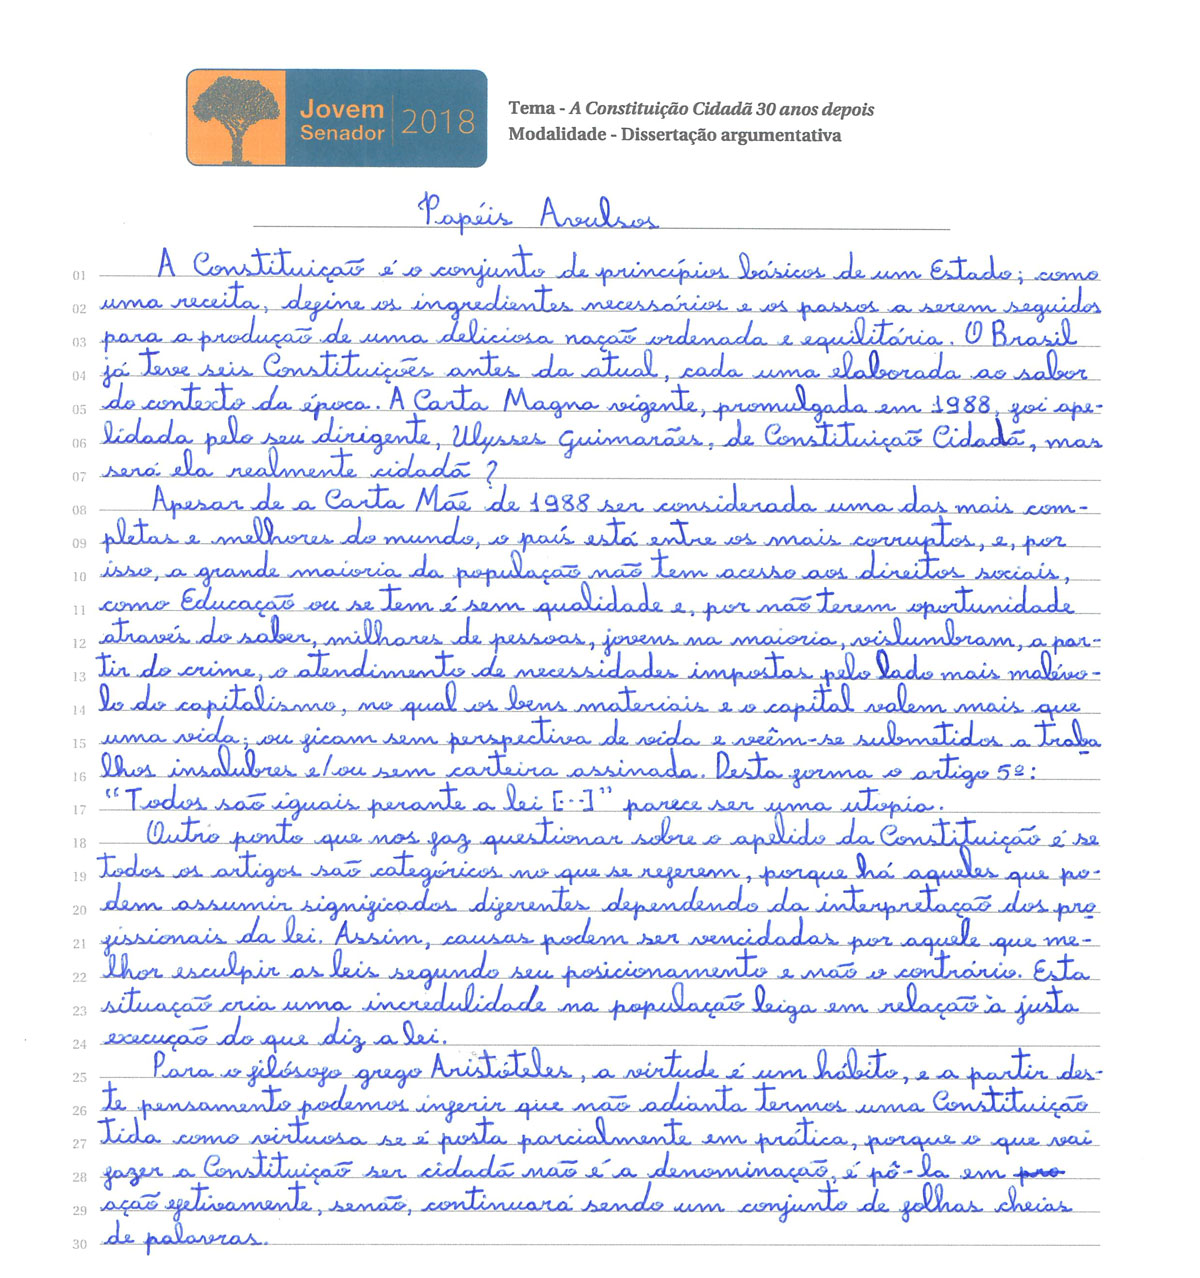 Jovem
Senador
2018
Tema - A Constituição Cidadã 30 anos depois
Modalidade - Dissertação argumentativa
Papéis Avulsos
01 A Constituição é o conjunto de princípios básicos de um Estado; como
02 uma receita, define os ingredientes necessários e os passos a serem seguidos
03 para a produção de uma deliciosa nação ordenada e equilitária. O Brasil
04 já teve seis Constituições antes da atual, cada uma elaborada ao sabor
05 do contexto da época. A Carta Magna vigente, promulgada em 1988, foi ape-
06 lidada pelo seu dirigente, Ulysses Guimarães, de Constituição Cidadã, mas
07 será ela realmente cidadã?
08 Apesar de a Carta Mãe de 1988 ser considerada uma das mais com-
09 pletas e melhores do mundo, o país está entre os mais corruptos, e, por
10 isso, a grande maioria da população não tem acesso aos direitos sociais,
11 como Educação ou se tem é sem qualidade e, por não terem oportunidade
12 através do saber, milhares de pessoas, jovens na maioria, vislumbram, a par-
13 tir do crime, o atendimento de necessidades impostas pelo lado mais malévo-
14 lo do capitalismo, no qual os bens materiais e o capital valem mais que
15 uma vida; ou ficam sem perspectiva de vida e veêm-se submetidos a traba
16 lhos insalubres e/ou sem carteira assinada. Desta forma o artigo 5º:
17 "Todos são iguais perante a lei [...]" parece ser uma utopia.
18 Outro ponto que nos faz questionar sobre o apelido da Constituição é se
19 todos os artigos são categóricos no que se referem, porque há aqueles que po-
20 dem assumir significados diferentes dependendo da interpretação dos pro
21 fissionais da lei. Assim, causas podem ser vencidadas por aquele que me-
22 lhor esculpir as leis segundo seu posicionamento e não o contrário. Esta
23 situação cria uma incredulidade na população leiga em relação à justa
24 execução do que diz a lei.
25 Para o filósofo grego Aristóteles, a virtude é um hábito, e a partir des-
26 te pensamento podemos inferir que não adianta termos uma Constituição
27 tida como virtuosa se é posta parcialmente em prática, porque o que vai
28 fazer a Constituição ser cidadã não é a denominação, é pô-la em pro
29 ação efetivamente, senão, continuará sendo um conjunto de folhas cheias
30 de palavras.